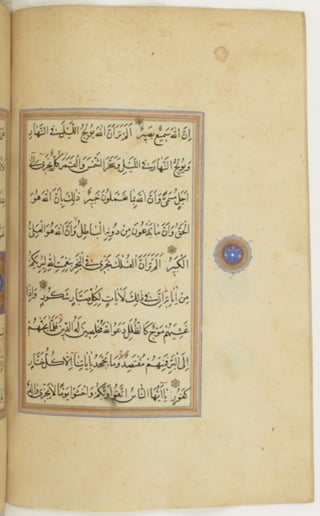 إن الله سميع بصير ألم تر أن الله يولج الليل في النهار
ويولج النهار في الليل وسخر الشمس والقمر كل يجري إلى
أجل مسمى وأن الله بما تعملون خبير ذلك بأن الله هو
الحق وأن ما يدعون من دونه الباطل وأن الله هو العلي
الكبير ألم تر أن الفلك تجري في البحر بنعمت الله ليريكم
من آياته إن في ذلك لآيات لكل صبار شكور وإذا
غشيهم موج كالظلل دعوا الله مخلصين له الدين فلما نجيهم
إلى البر فمنهم مقتصد وما يجحد بآياتنا إلا كل ختار
كفور يا أيها الناس اتقوا ربكم واخشوا يوما لا يجزي والد